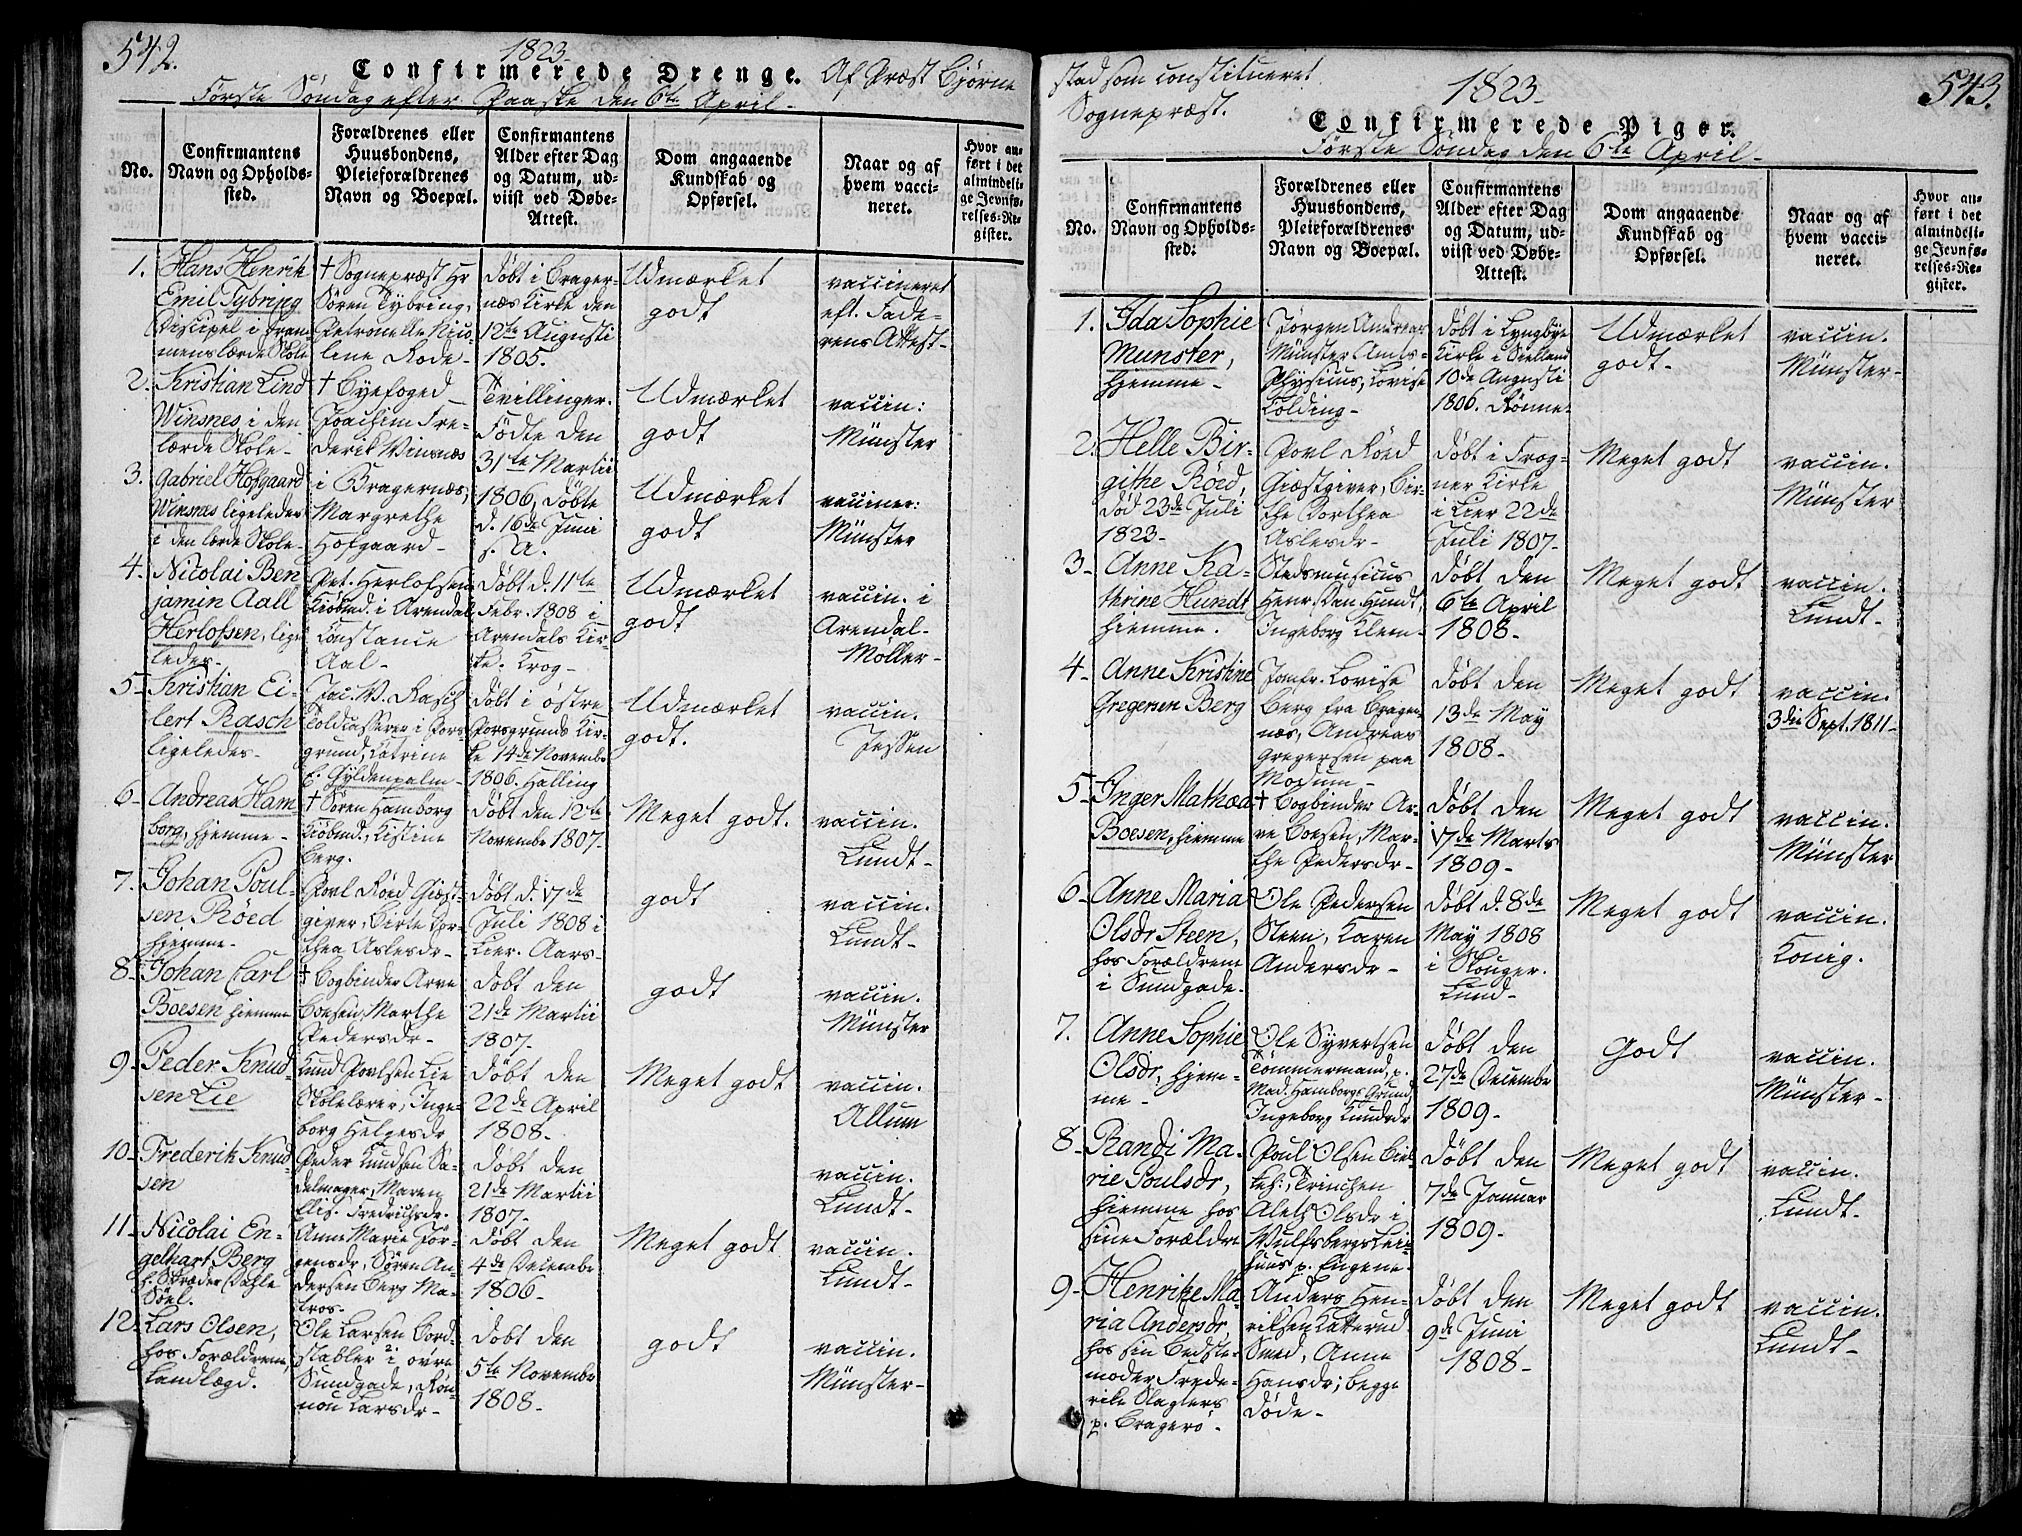 542.
1823.
Confirmerede Drenge. Af Præst Bjørne
Første Søndag efter Paaske den 6te April.
No.
Confirmantens
Navn og Opholds-
sted.
Forældrenes eller
Huusbondens,
Pleieforældrenes
Navn og Boepæl.
Confirmantens
Alder efter Dag
og Datum, ud-
viist ved Døbe-
Attest.
Dom angaaende
Kundskab og
Opførsel.
Naar og af
hvem vacci-
neret.
Hvor an-
ført i det
almindeli-
ge Jevnfø-
relses-Re-
gister.
1.
Hans Henrik
Emil Tybring
Discipel i Dram
mens lærde Skole
† Sognepræst Hr
Søren Tybring,
Petronelle Nico
line Rode-
Døbt i Brager-
næs Kirke den
12te Augusti
1805.
Udmærket
godt
vaccineret
eft. Fade-
rens Attest-
2.
Kristian Lind
Winsnes i den
lærde Skole-
† Byefoged
Joachim Fre-
derik Vinsnæs
Tvillinger.
Fødte den
31te Martii
Udmærket
godt
vaccin:
Münster
3.
Gabriel Hofgaard
Winsnes ligeledes
i den lærde Skole-
i Bragernæs,
Margrethe
Hofgaard-
1806, Døbte
d. 16de Juni
s. A.
Udmærket
godt
vacciner:
Münster
4.
Nicolai Ben
jamin Aall
Herlofsen, lige
ledes-
Pet. Herlofsen
Kiøbmd. i Arendal
Constance
Aal-
Døbt d. 11te
Febr. 1808 i
Arendals Kir-
ke. Krog-
Udmærket
godt
vaccin. i
Arendal-
Møller-
5-
Kristian Ei-
lert Rasch
ligeledes-
Jac: W. Rasch
Toldcasserer i Pors
grund, Catrine
f. Gyldenpalm-
Døbt i østre
Porsgrunds Kir-
ke 14de Novembr
1806. Halling
Udmærket
godt.
vaccin.
Jessen
6-
Andreas Ham
borg, hjemme-
† Søren Hamborg
Kiøbmd., Kistine
Berg.
Døbt den 12te
Novembr 1807-
Meget godt.
vaccin.
Lundt-
7.
Johan Poul-
sen Røed
hiemme-
Povl Røed Giæst-
giver, Birte Dor-
thea Aslesdr-
Døbt d. 17de
Juli 1808 i
Lier. Aars-
godt
vaccin.
Lundt-
8-
Johan Carl
Boesen hiemme
† Bogbinder Arve
Boesen, Marthe
Pedersdr-
Døbt den
21de Martii
1807-
godt
vaccin.
Münster
9-
Peder Knud-
sen Lie
Knud Povlsen Lie
Skolelærer, Inge-
borg Helgesdr
Døbt den
22de April
1808-
Meget godt
vaccin.
Allum
10-
Frederik Knud
sen
Peder Knudsen Sa-
delmager, Maren
Elis. Fredrichsdr.
Døbt den
21de Martii
1807-
vaccin.
Lundt-
11-
Nicolai En-
gelhart Berg
Anne Marie Jør-
gensdr, Søren An-
dersen Berg Ma-
tros-
Døbt den
4de Decembr
1806-
Meget godt
vaccin.
Lundt-
12-
Lars Olsen,
hos Forældrene,
Landlægd.
Ole Larsen Bord-
stabler i øvre
Sundgade, Røn-
nou Larsdr-
Døbt den
5te Novembr
1808-
godt
vaccin.
Münster-
stad som constitueret
Sognepræst.
1823-
543.
Confirmerede Piger.
Første Søndag den 6te April-
No.
Confirmantens
Navn og Opholds-
sted:
Forældrenes eller
Huusbondens,
Pleieforældrenes
Navn og Boepæl.
Confirmantens
Alder efter Dag
og Datum, ud-
viist ved Døbe-
Attest.
Dom angaaende
Kundskab og
Opførsel.
Naar og af
hvem vacci-
neret.
Hvor an-
ført i det
almindeli-
ge Jevnfø-
relses-Re-
gister.
1.
Ida Sophie
Munster,
hjemme-
Jørgen Andreas
Münster Amts-
Physicus, Lovise
Colding-
Døbt i Lyngbye
Kirke i Siælland
10de Augusti
1806. Rønne-
Udmærket
godt-
vaccin.
Münster-
2.
Helle Bir-
githe Røed,
død 23de Juli
1823-
Povl Røed
Giæstgiver, Bir-
the Dorthea
Aslesdr-
Døbt i Frog-
ner Kirke
i Lier 22de
Juli 1807-
Meget godt
vaccin.
Münster
3-
Anne Ka-
thrine Hundt
hiemme.
Stedsmusicus
Henr. Dan. Hundt,
Ingeborg Klem-
Døbt den
6te April
1808-
Meget godt
vaccin.
Lundt-
4-
Anne Kristine
Gregersen Berg
Jomfr. Lovise
Berg fra Brager-
næs, Andreas
Gregersen paa
Modum-
Døbt den
13de May
1808-
Meget godt
vaccin.
3die Sept. 1811-
5-
Inger Mathea
Boesen, hiemme
† Bogbinder Ar-
ve Boesen, Mar-
the Pedersdr-
Døbt den
17de Marts
1809-
Meget godt
vaccin.
Münster
6-
Anne Maria
Olsdr Steen,
hos Forældrene
i Sundgade.
Ole Pedersen
Steen, Karen
Andersdr-
Døbt d. 8de
May 1808
i Skouger.
Lund-
Meget godt
vaccin.
Konig.
7.
Anne Sophie
Olsdr, hjem-
me-
Ole Syvertsen
Tømmermand, p.
Mad. Hamborgs Grund,
Ingeborg Knudsdr
Døbt den
27de Decembr
1809-
Godt
vaccin.
Münster-
8-
Randi Ma-
rie Poulsdr,
hiemme hos
sine Forældre
Poul Olsen
Trinchen
Aleth Olsdr i
Døbt den
7de Januar
1809-
Meget godt
vaccin.
Lundt-
9-
Henrikke Ma-
ria Andersdr
hos sin Bedste-
moder Frede-
rike Slagters
p. Bragerø-
Anders Hen-
riksen
Smed, Anne
Hansdr; begge
døde-
Døbt den
9de Juni
1808-
Meget godt
vaccin.
Lundt-